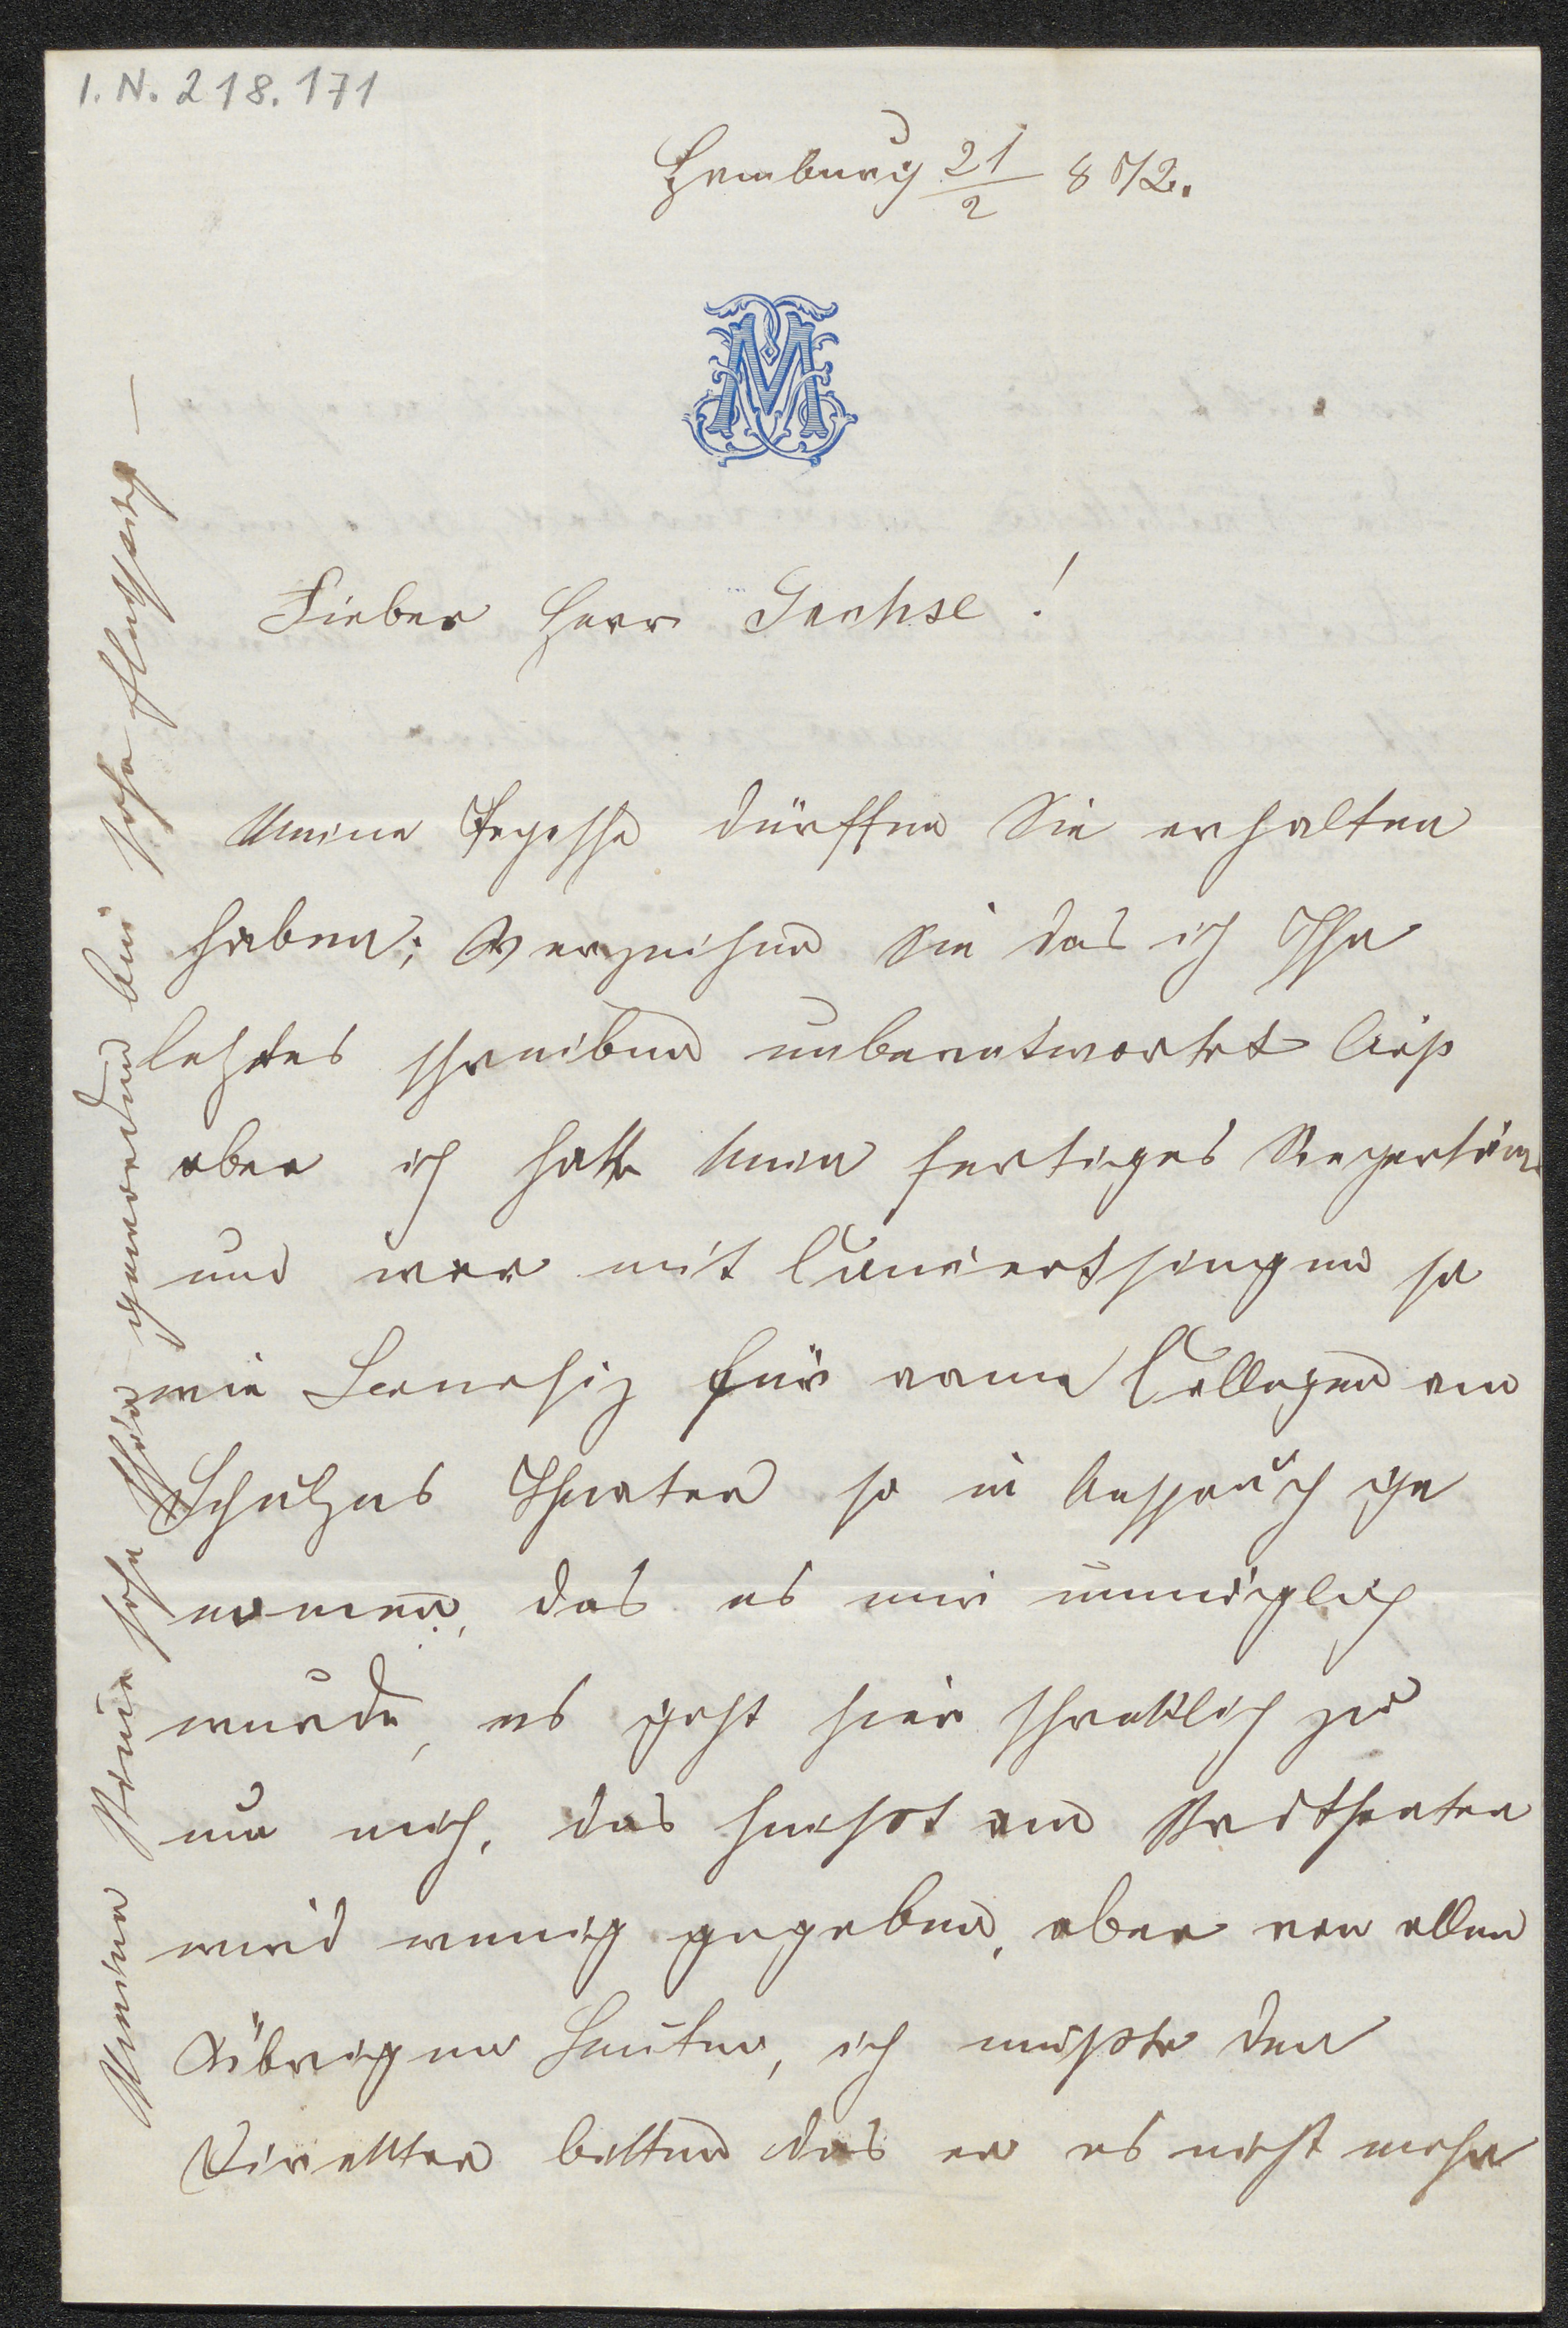 I. N. 218.171
Hamburg 21/2 872.
M
Lieber Herr Sachse!
Meine Depesche dürften Sie erhalten
haben; Verzeihen Sie das ich Ihr
letztes schreiben unbeantwortet ließ
aber ich hatte kein fertiges Repertoir
und war mit Concertsingen so
wie Benefiz für arme Collegen am
Schulzes Theater so in Anspruch ge
nomen, das es mir unmöglich
wurde, es geht hier schrecklich zu
um mich, das heißt am Stadtheater
wird wenig gegeben, aber von allen
Übrigen Leuten, ich mußte den
Direktter bitten das er es nicht mehr
Meine Stime sehr schön geworden bin sehr fleißig —